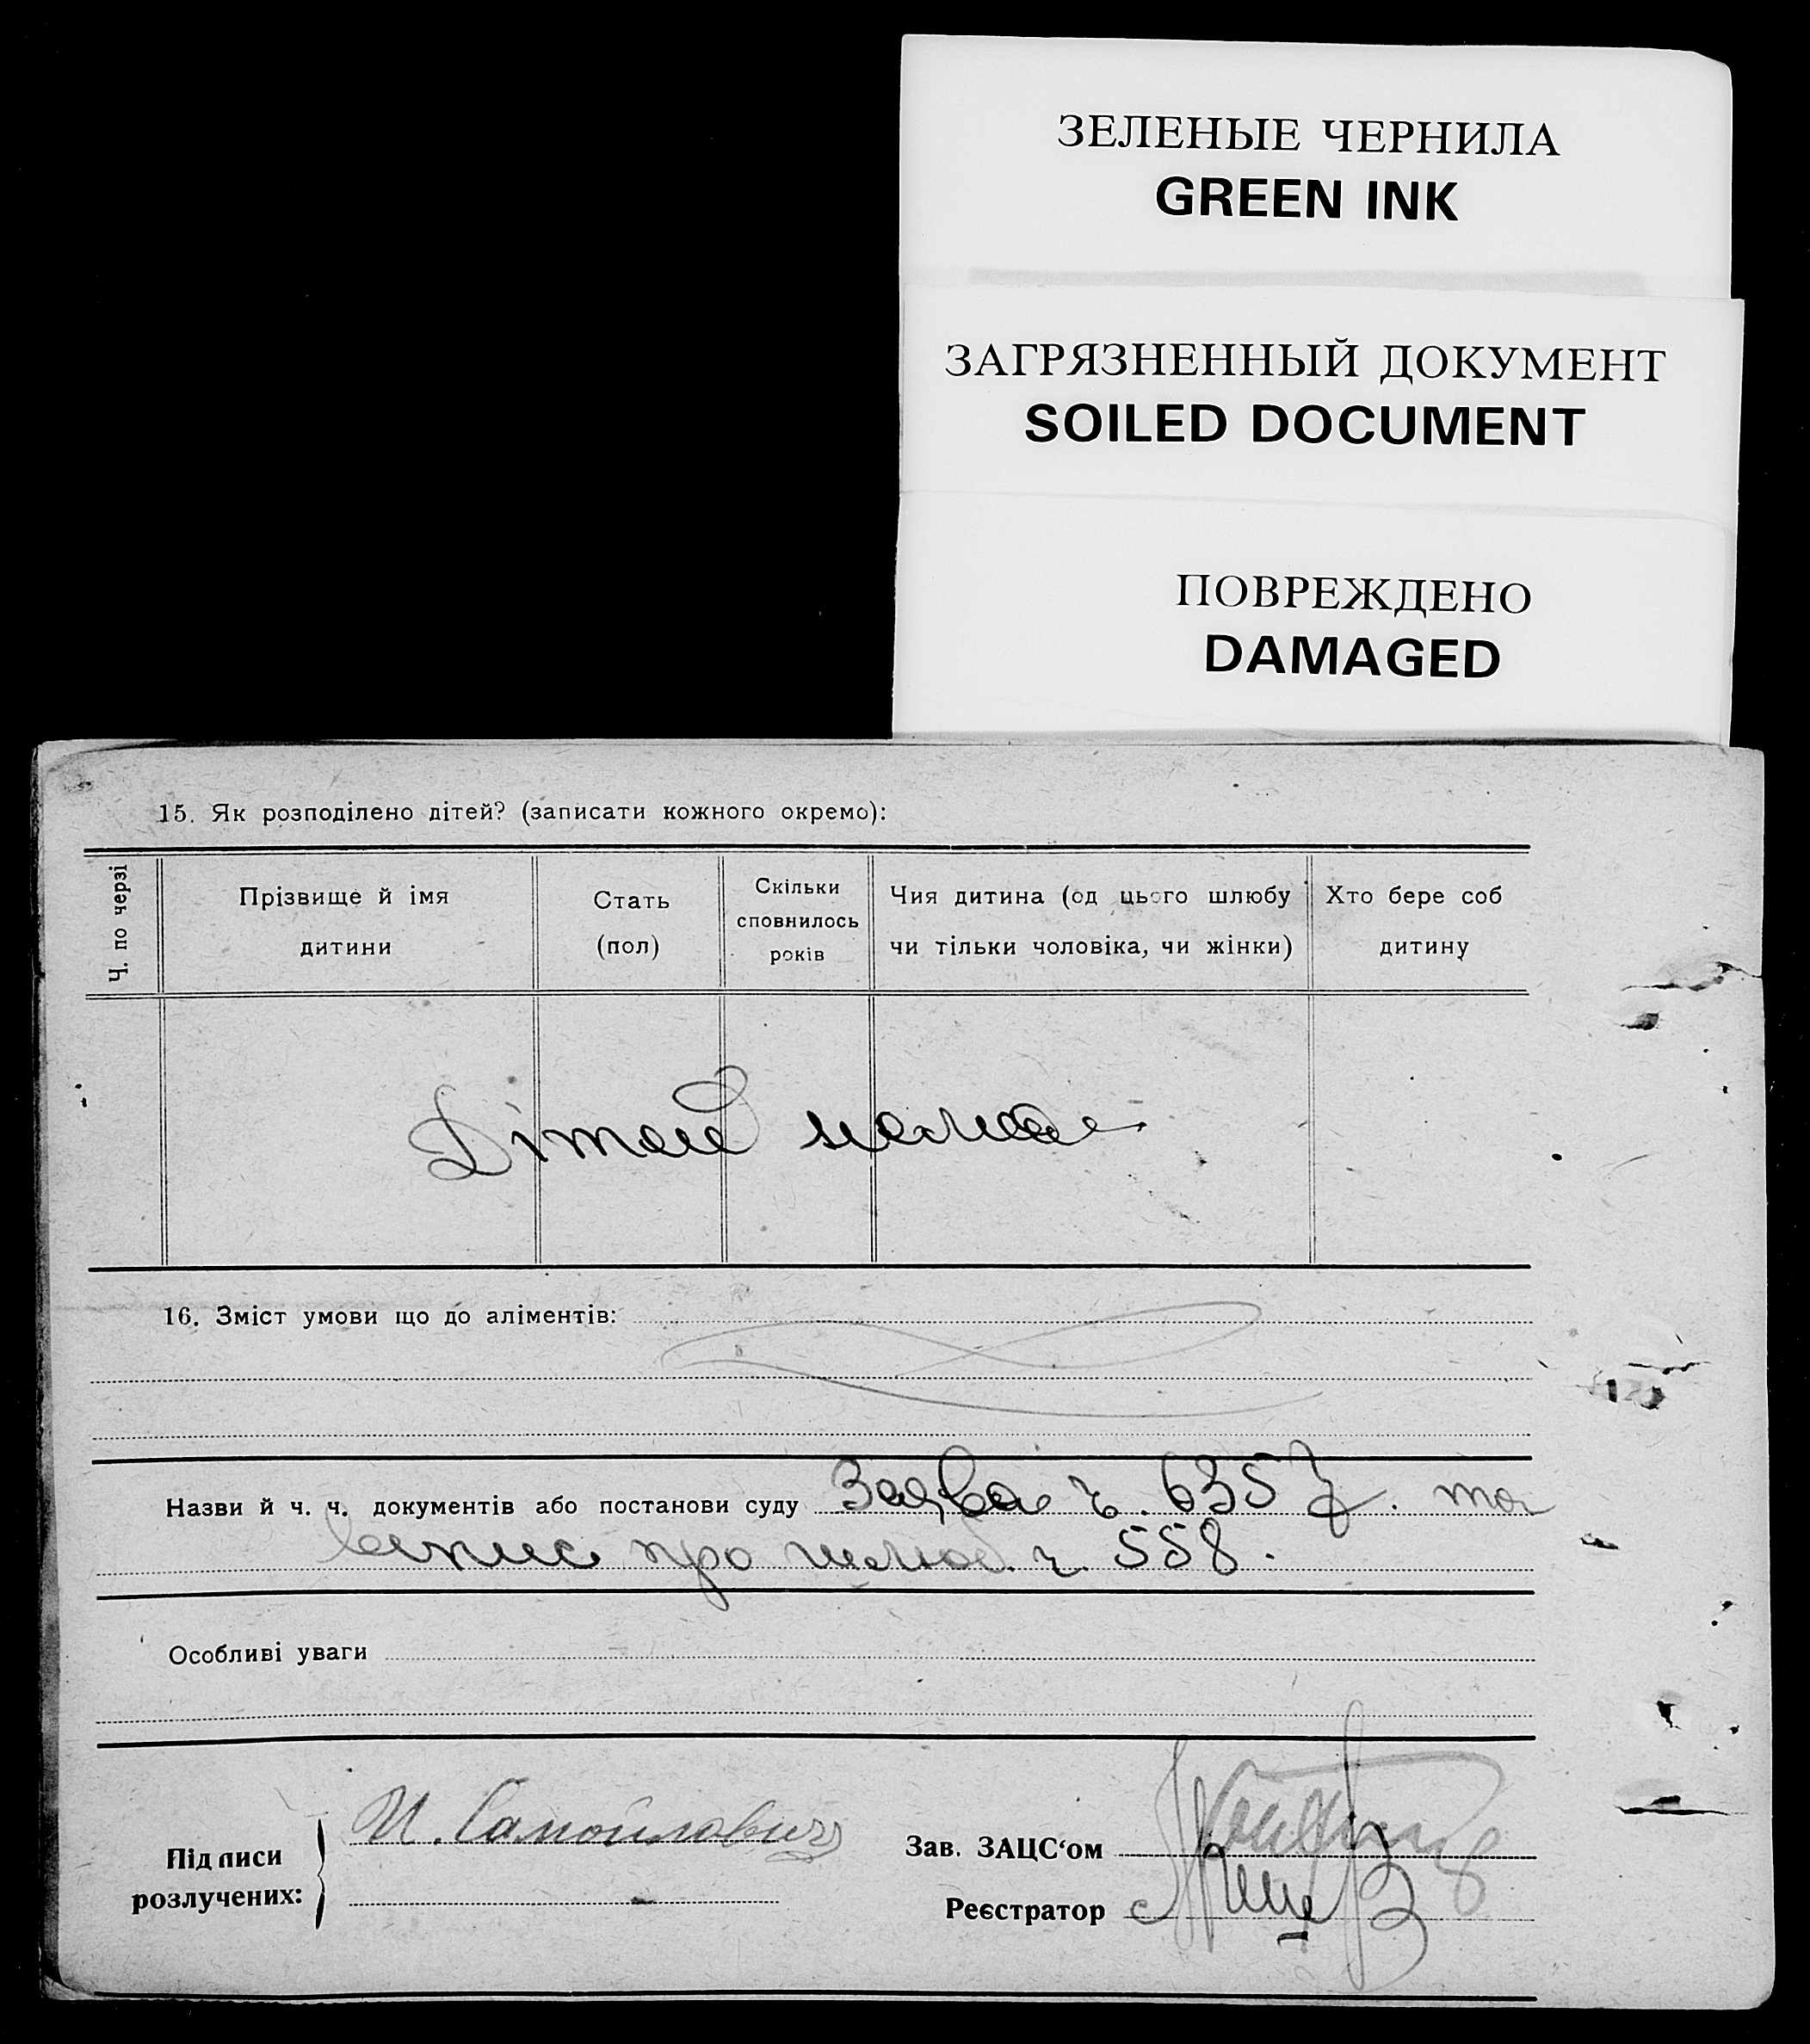 ЗЕЛЕНЫЕ ЧЕРНИЛА
GREEN INK
ЗАГРЯЗНЕННЫЙ ДОКУМЕНТ
SOILED DOCUMENT
ПОВРЕЖДЕНО
DAMAGED
15. Як розподілено дітей? (записати кожного окремо):
Ч. по черзі
Прізвище й імя
дитини
Стать
(пол)
Скільки
сповнилось
років
Чия дитина (од цього шлюбу
чи тільки чоловіка, чи жінки)
Хто бере соб
дитину
Дітей немає
16. Зміст умови що до аліментів:
Назви й ч. ч. документів або постанови суду Заява ч. 6357. та
випис про шлюб. ч. 558.
Особливі уваги
Підписи
розлучених:
И. Самойлович
Зав. ЗАЦС‘ом
Реєстратор